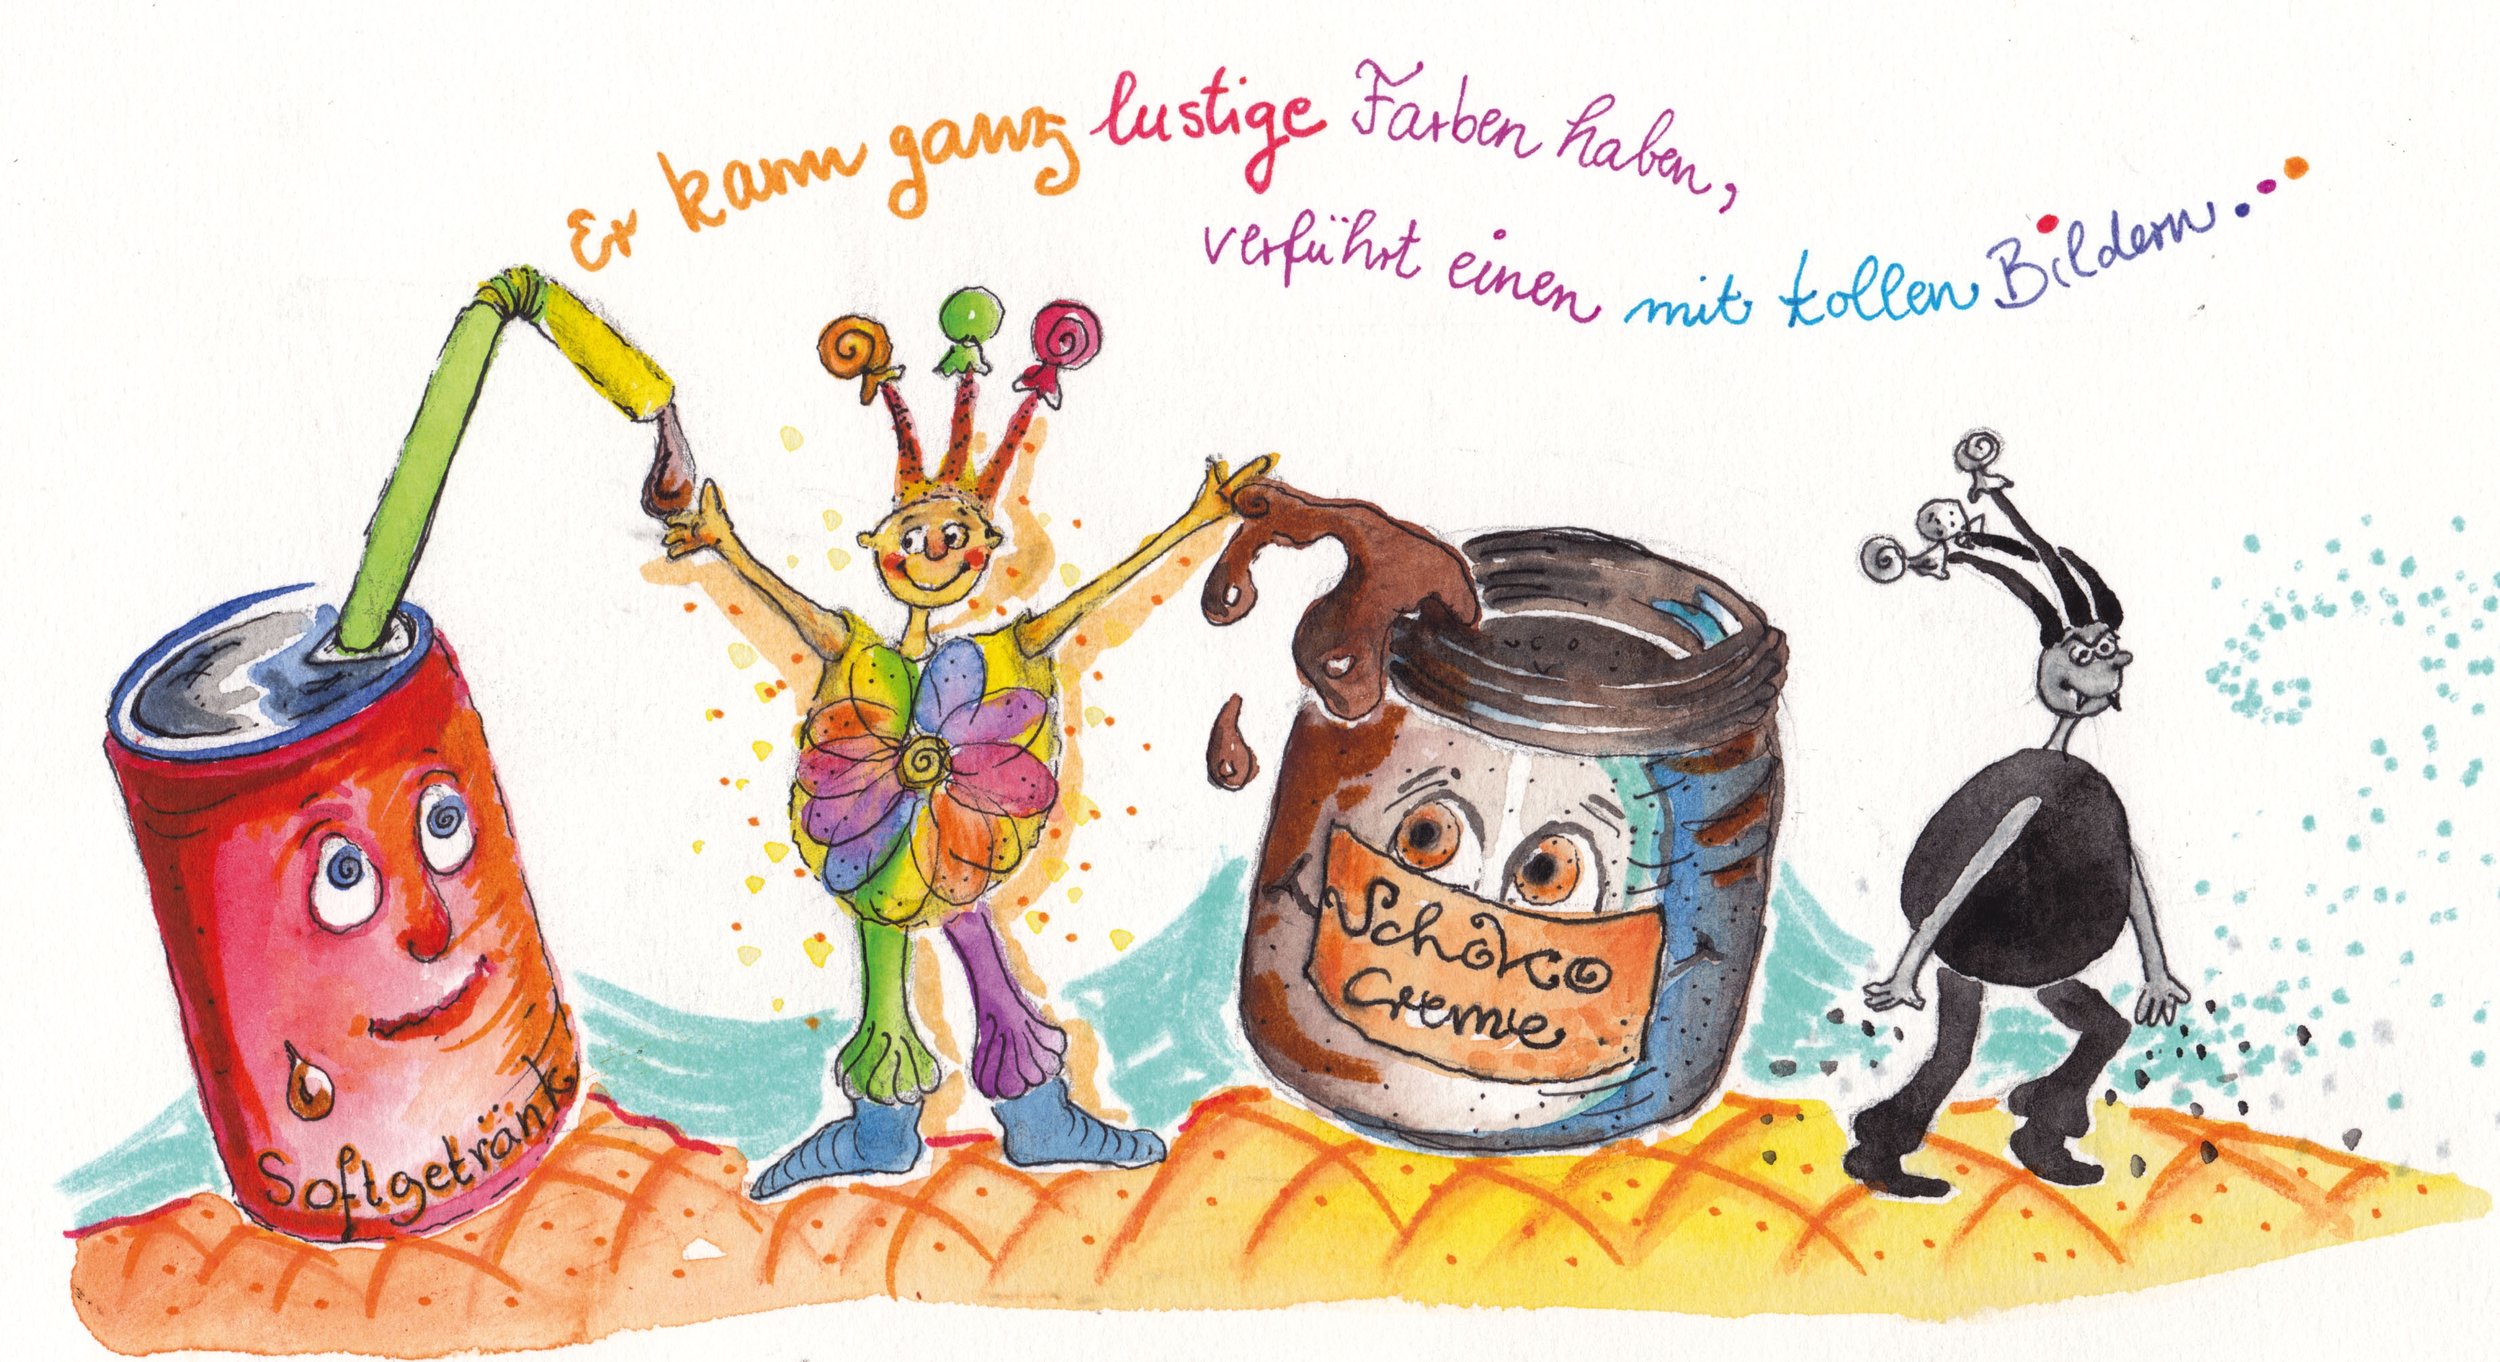 Er kann ganz lustige Farben haben,
verführt einen mit tollen Bildern...
Softgetränk
Schoko
Creme